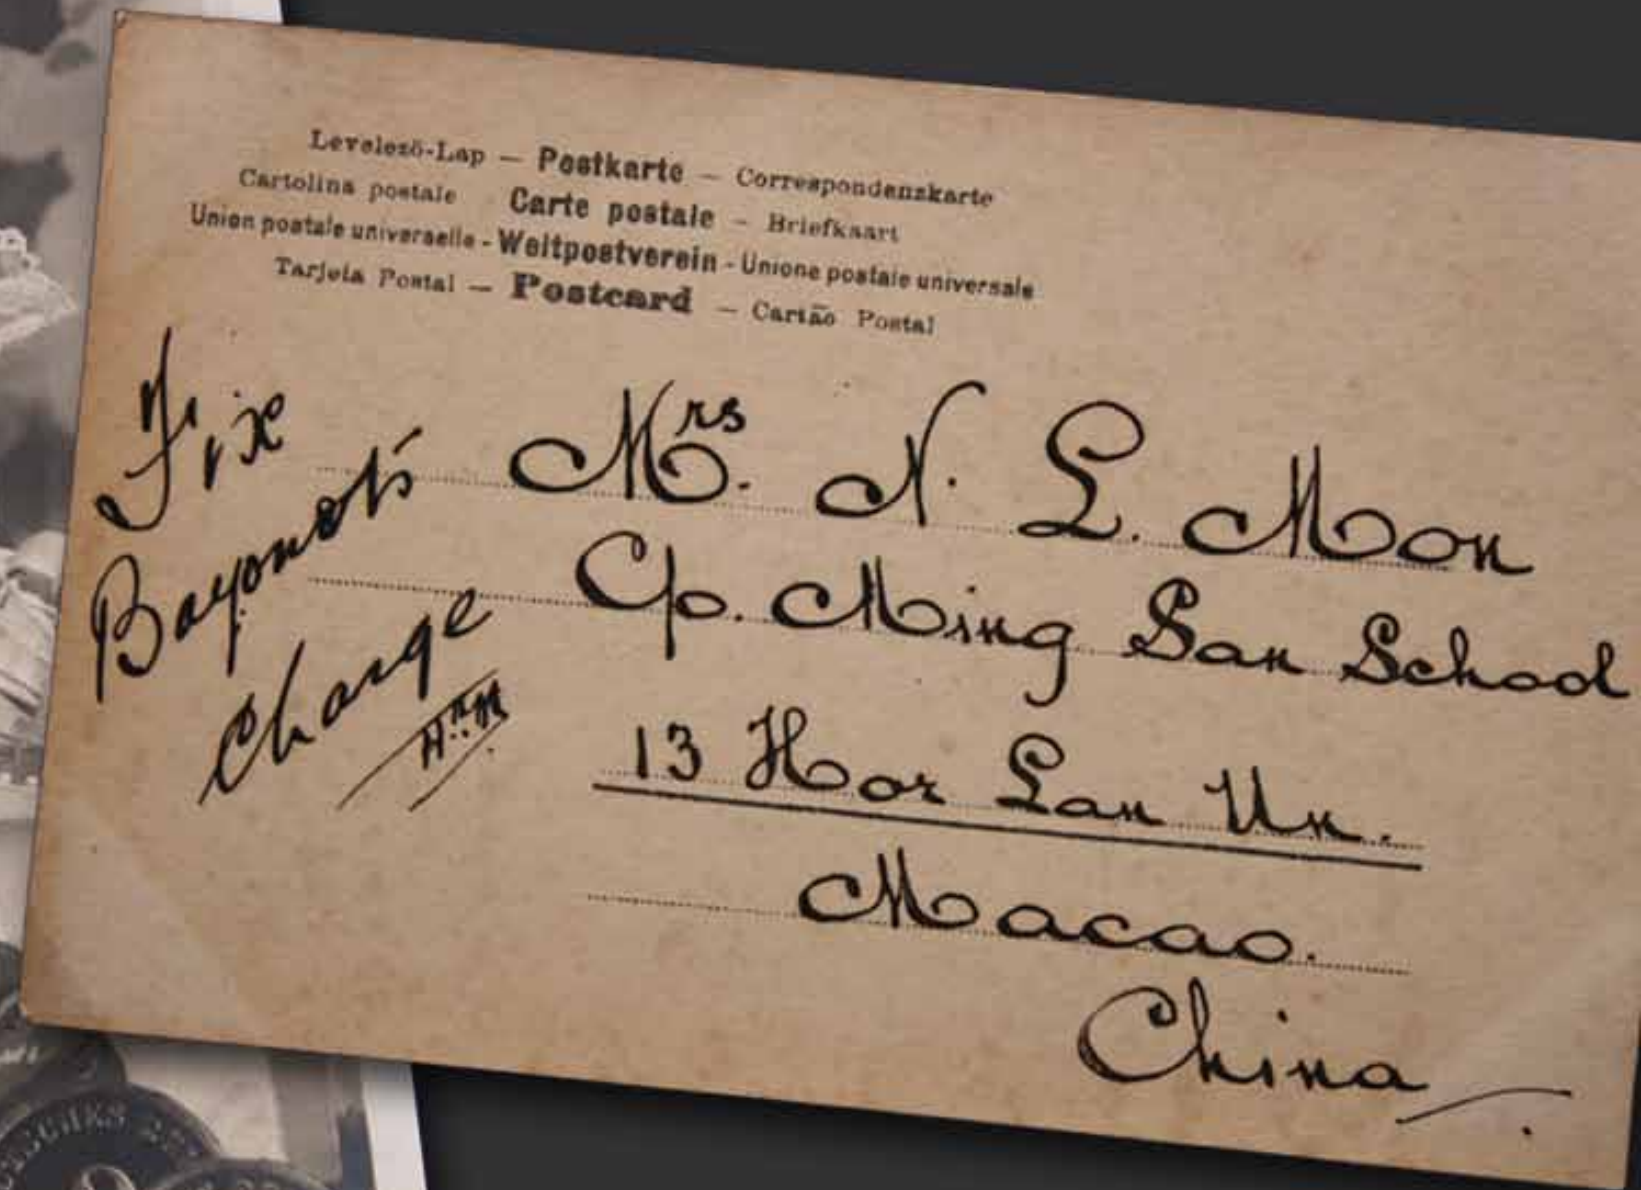 Levelező-Lap – Postkarte – Correspondenzkarte
Cartolina postale Carte postale – Briefkaart
Union postale universelle - Weltpostverein - Unione postale universale
Tarjeta Postal – Postcard – Cartão Postal
Fix
Bayonets
Charge
Mrs. N. L. Mon
C/o. Ming San School
13 Hor Lan Un.
Macao.
China